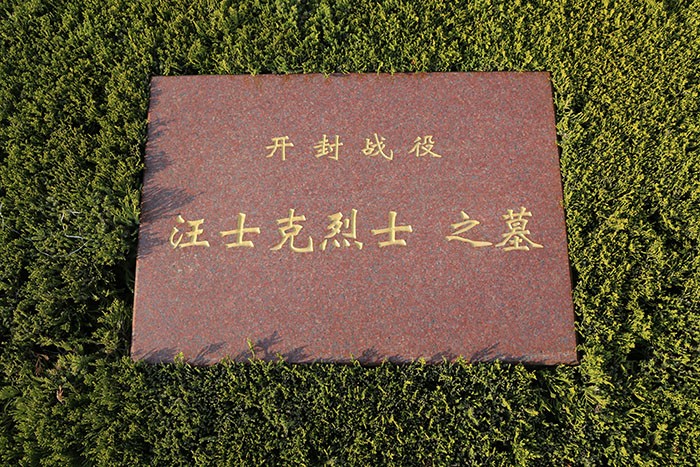 开封战役
汪士克烈士 之墓